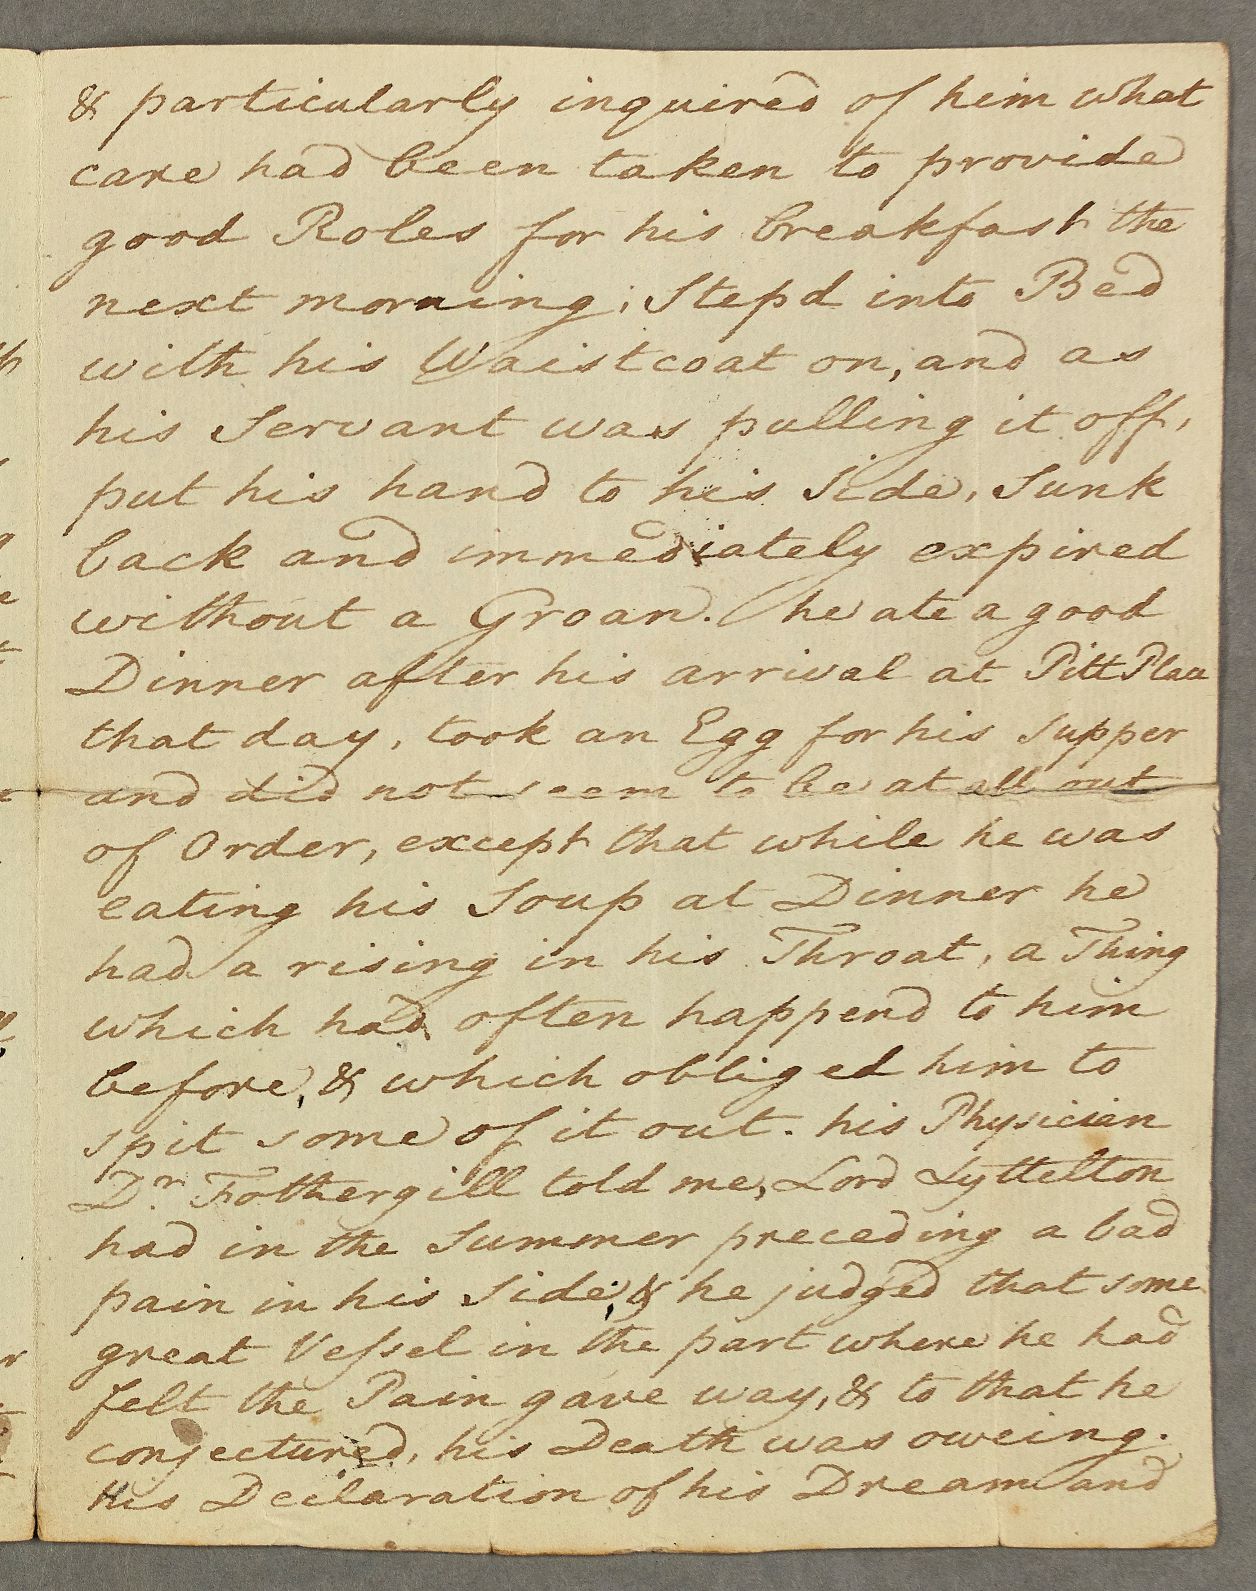 & particularly inquired of him what
care had been taken to provide
good Roles for his breakfast the
next morning; Stepd into Bed
with his Waistcoat on, and as
his Servant was pulling it off,
put his hand to his Side, Sunk
back and immediately expired
without a Groan. he ate a good
Dinner after his arrival at Pitt Place
that day, took an Egg for his Supper
and did not seem to be at all out
of Order, except that while he was
eating his Soup at Dinner he
had a rising in his Throat, a Thing
which had often happend to him
before, & which obliged him to
spit some of it out. his Physician
Dr. Fothergill told me, Lord Lyttelton
had in the Summer preceding a bad
pain in his Side; & he judged that some
great Vessel in the part where he had
felt the Pain gave way, & to that he
conjectured, his Death was oweing.
His Decilaration of his Dream and